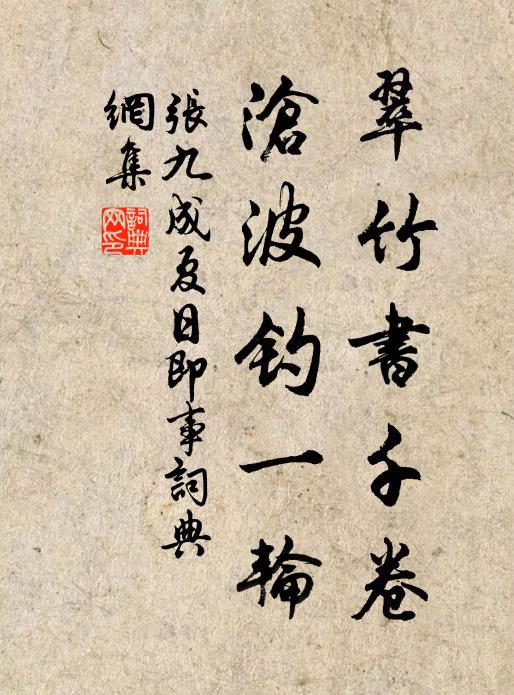 翠竹書千卷
滄波釣一輪
張九成夏日即事詞典
網集
詞典網印